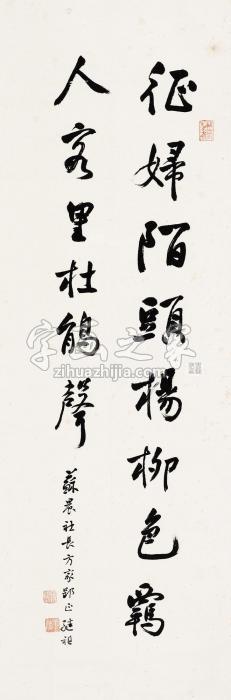 征婦陌頭楊柳色羈
人客里杜鵑聲
蘇晨社長方家郢正 继祖
字画之家
zihuazhijia.com